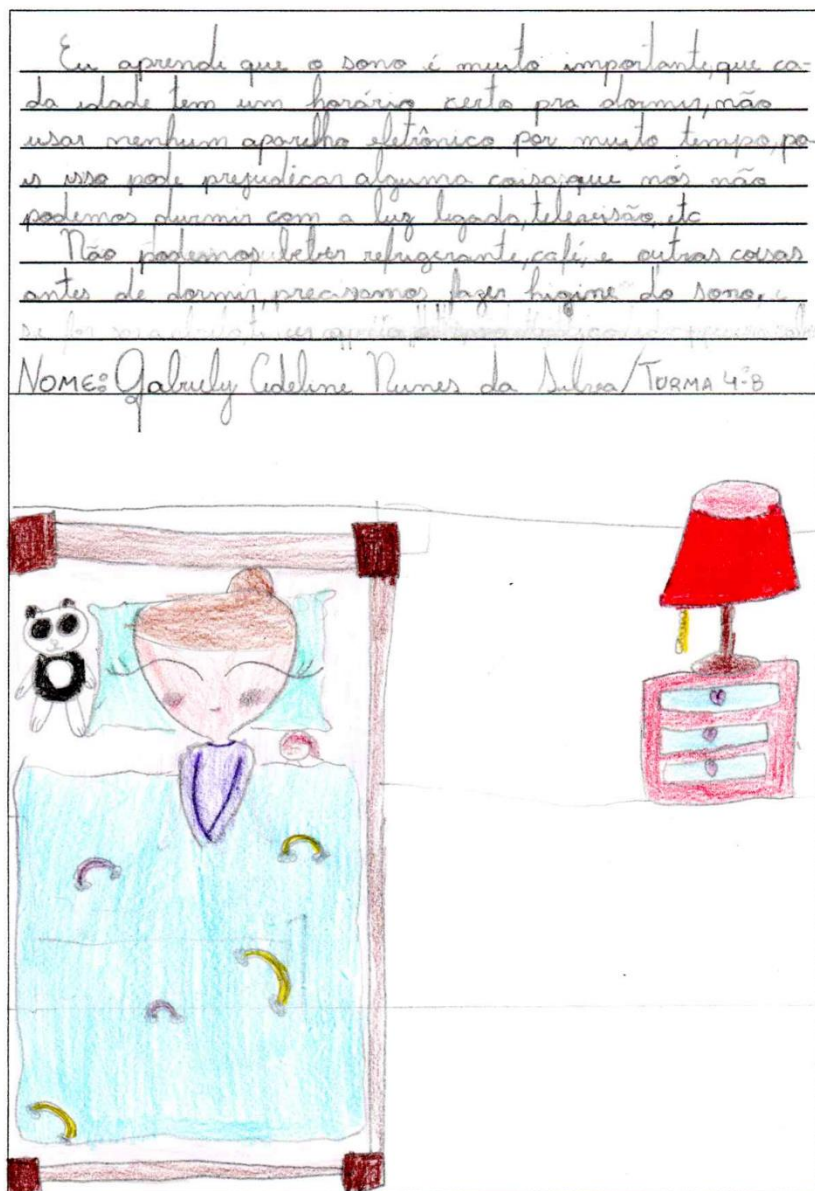 Eu aprendi que o sono é muito importante, que ca-
da idade tem um horário certo pra dormir, não
usar nenhum aparelho eletrônico por muito tempo, po-
is isso pode prejudicar alguma coisa, que nós não
podemos durmir com a luz ligada, televisão, etc
Não podemos beber refrigerante, café, e outras coisas
antes de dormir, precisamos fazer higine do sono, e
se for
NOME: Gabriely Cideline Nunes da Silva / TURMA 4º B